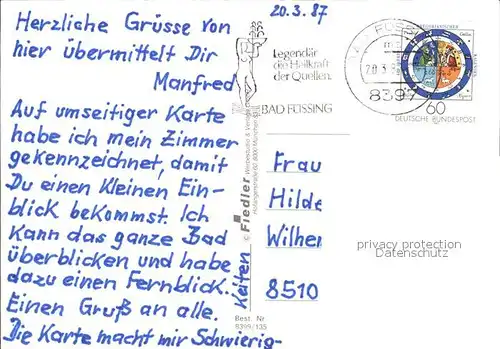 Herzliche Grüsse von
hier übermittelt Dir
Manfred
Auf umseitiger Karte
habe ich mein Zimmer
gekennzeichnet, damit
Du einen kleinen Ein-
blick bekommst. Ich
kann das ganze Bad
überblicken und habe
dazu einen Fernblick.
Einen Gruß an alle.
Die Karte macht mir Schwierig-
keiten
20.3.87
Legendär
die Heilkraft
der Quellen.
BAD FÜSSING
8397
60
DEUTSCHE BUNDESPOST
© Fiedler
Best. Nr.
8399/135
Frau
Hilde
Wilhel
8510
privacy protection
Datenschutz